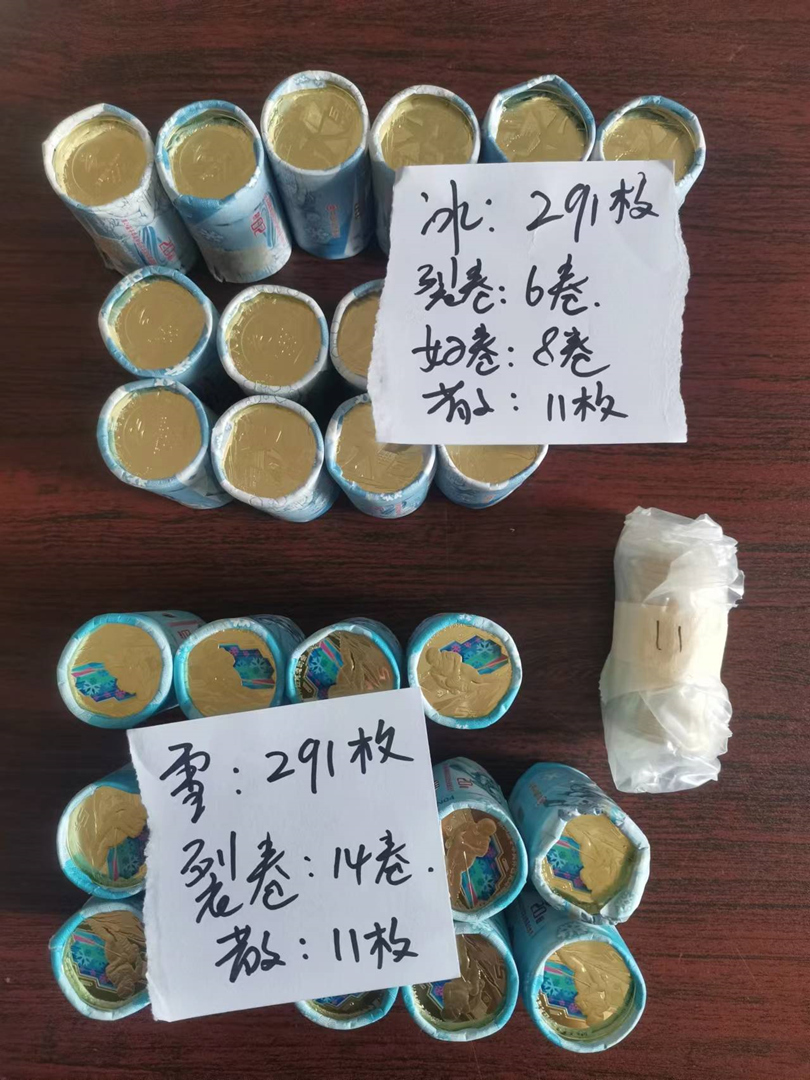 冰：291枚
裂卷：6卷.
好卷：8卷
散：11枚
11
雪：291枚
裂卷：14卷.
散：11枚